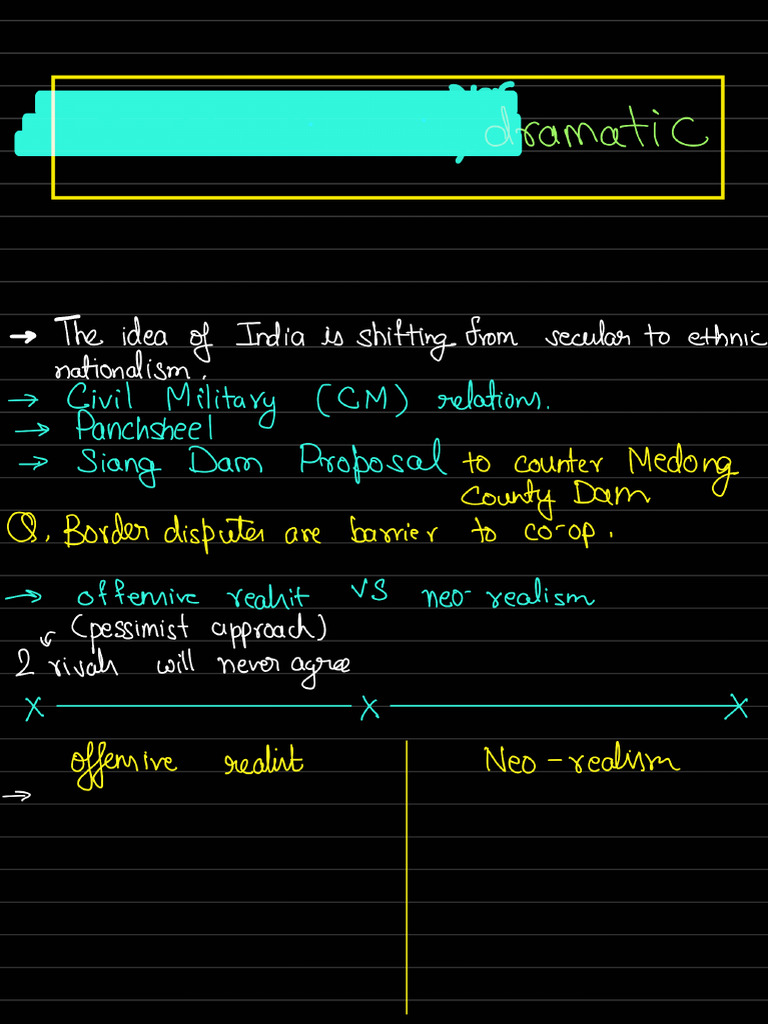 dramatic
→ The idea of India is shifting from secular to ethnic
nationalism.
→ Civil Military (CM) relations.
→ Panchsheel
→ Siang Dam Proposal to counter Medong
County Dam
Q. Border disputes are barrier to co-op.
→ offensive realist VS neo-realism
(pessimist approach)
2 rivals will never agree
X X X
offensive realist Neo-realism
→